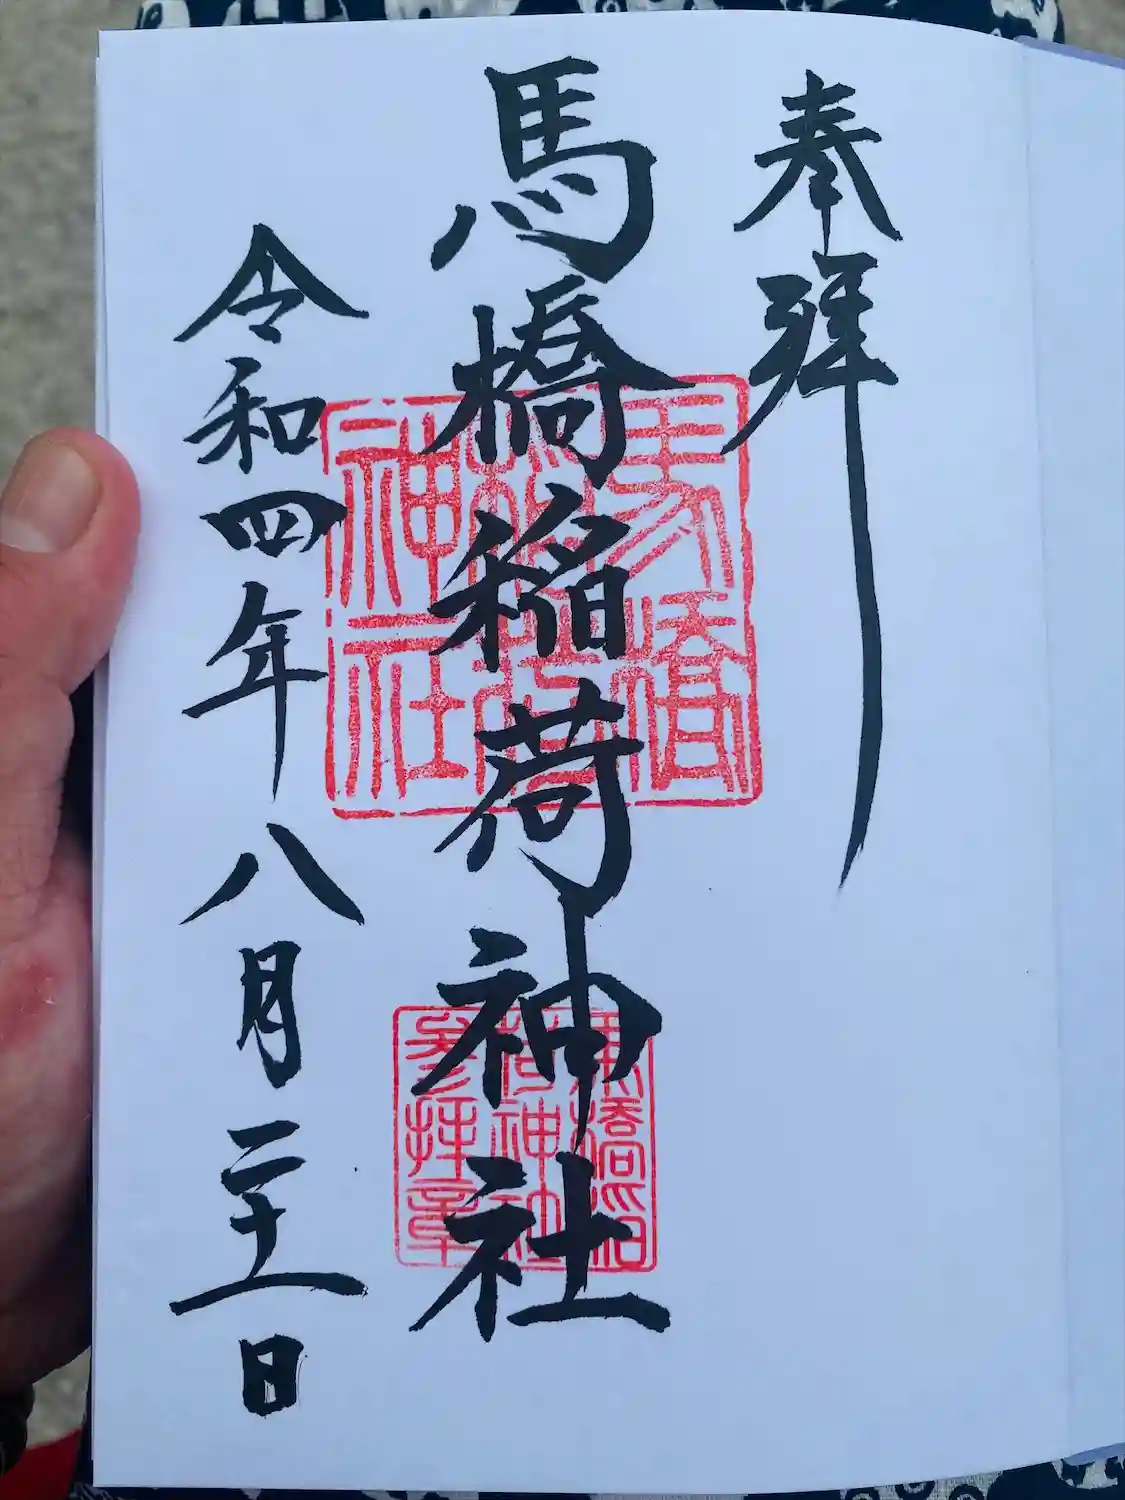 奉拝
馬橋稲荷神社
令和四年八月二十一日
馬橋
稲荷
神社
馬橋稲
荷神社
参拝章